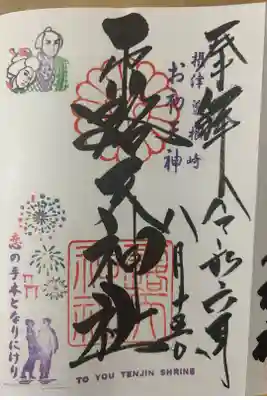 奉拝 令和六年
八月十五日
摂津 曽根崎
お初天神
露天神社
恋の手本となりにけり
TO YOU TENJIN SHRINE